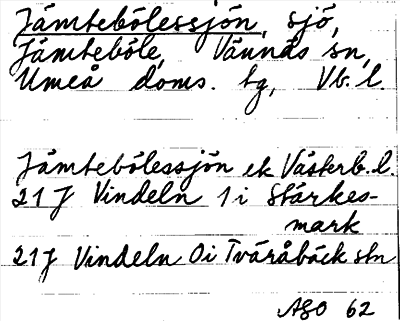 Jämtebölessjön, sjö,
Jämteböle, Vännäs sn,
Umeå doms. tg, Vb. l.
Jämtebölessjön ek Västerb. l.
21 J Vindeln 1 i Stärkes-
mark
21 J Vindeln 0 i Tväråbäck stn
ASO 62